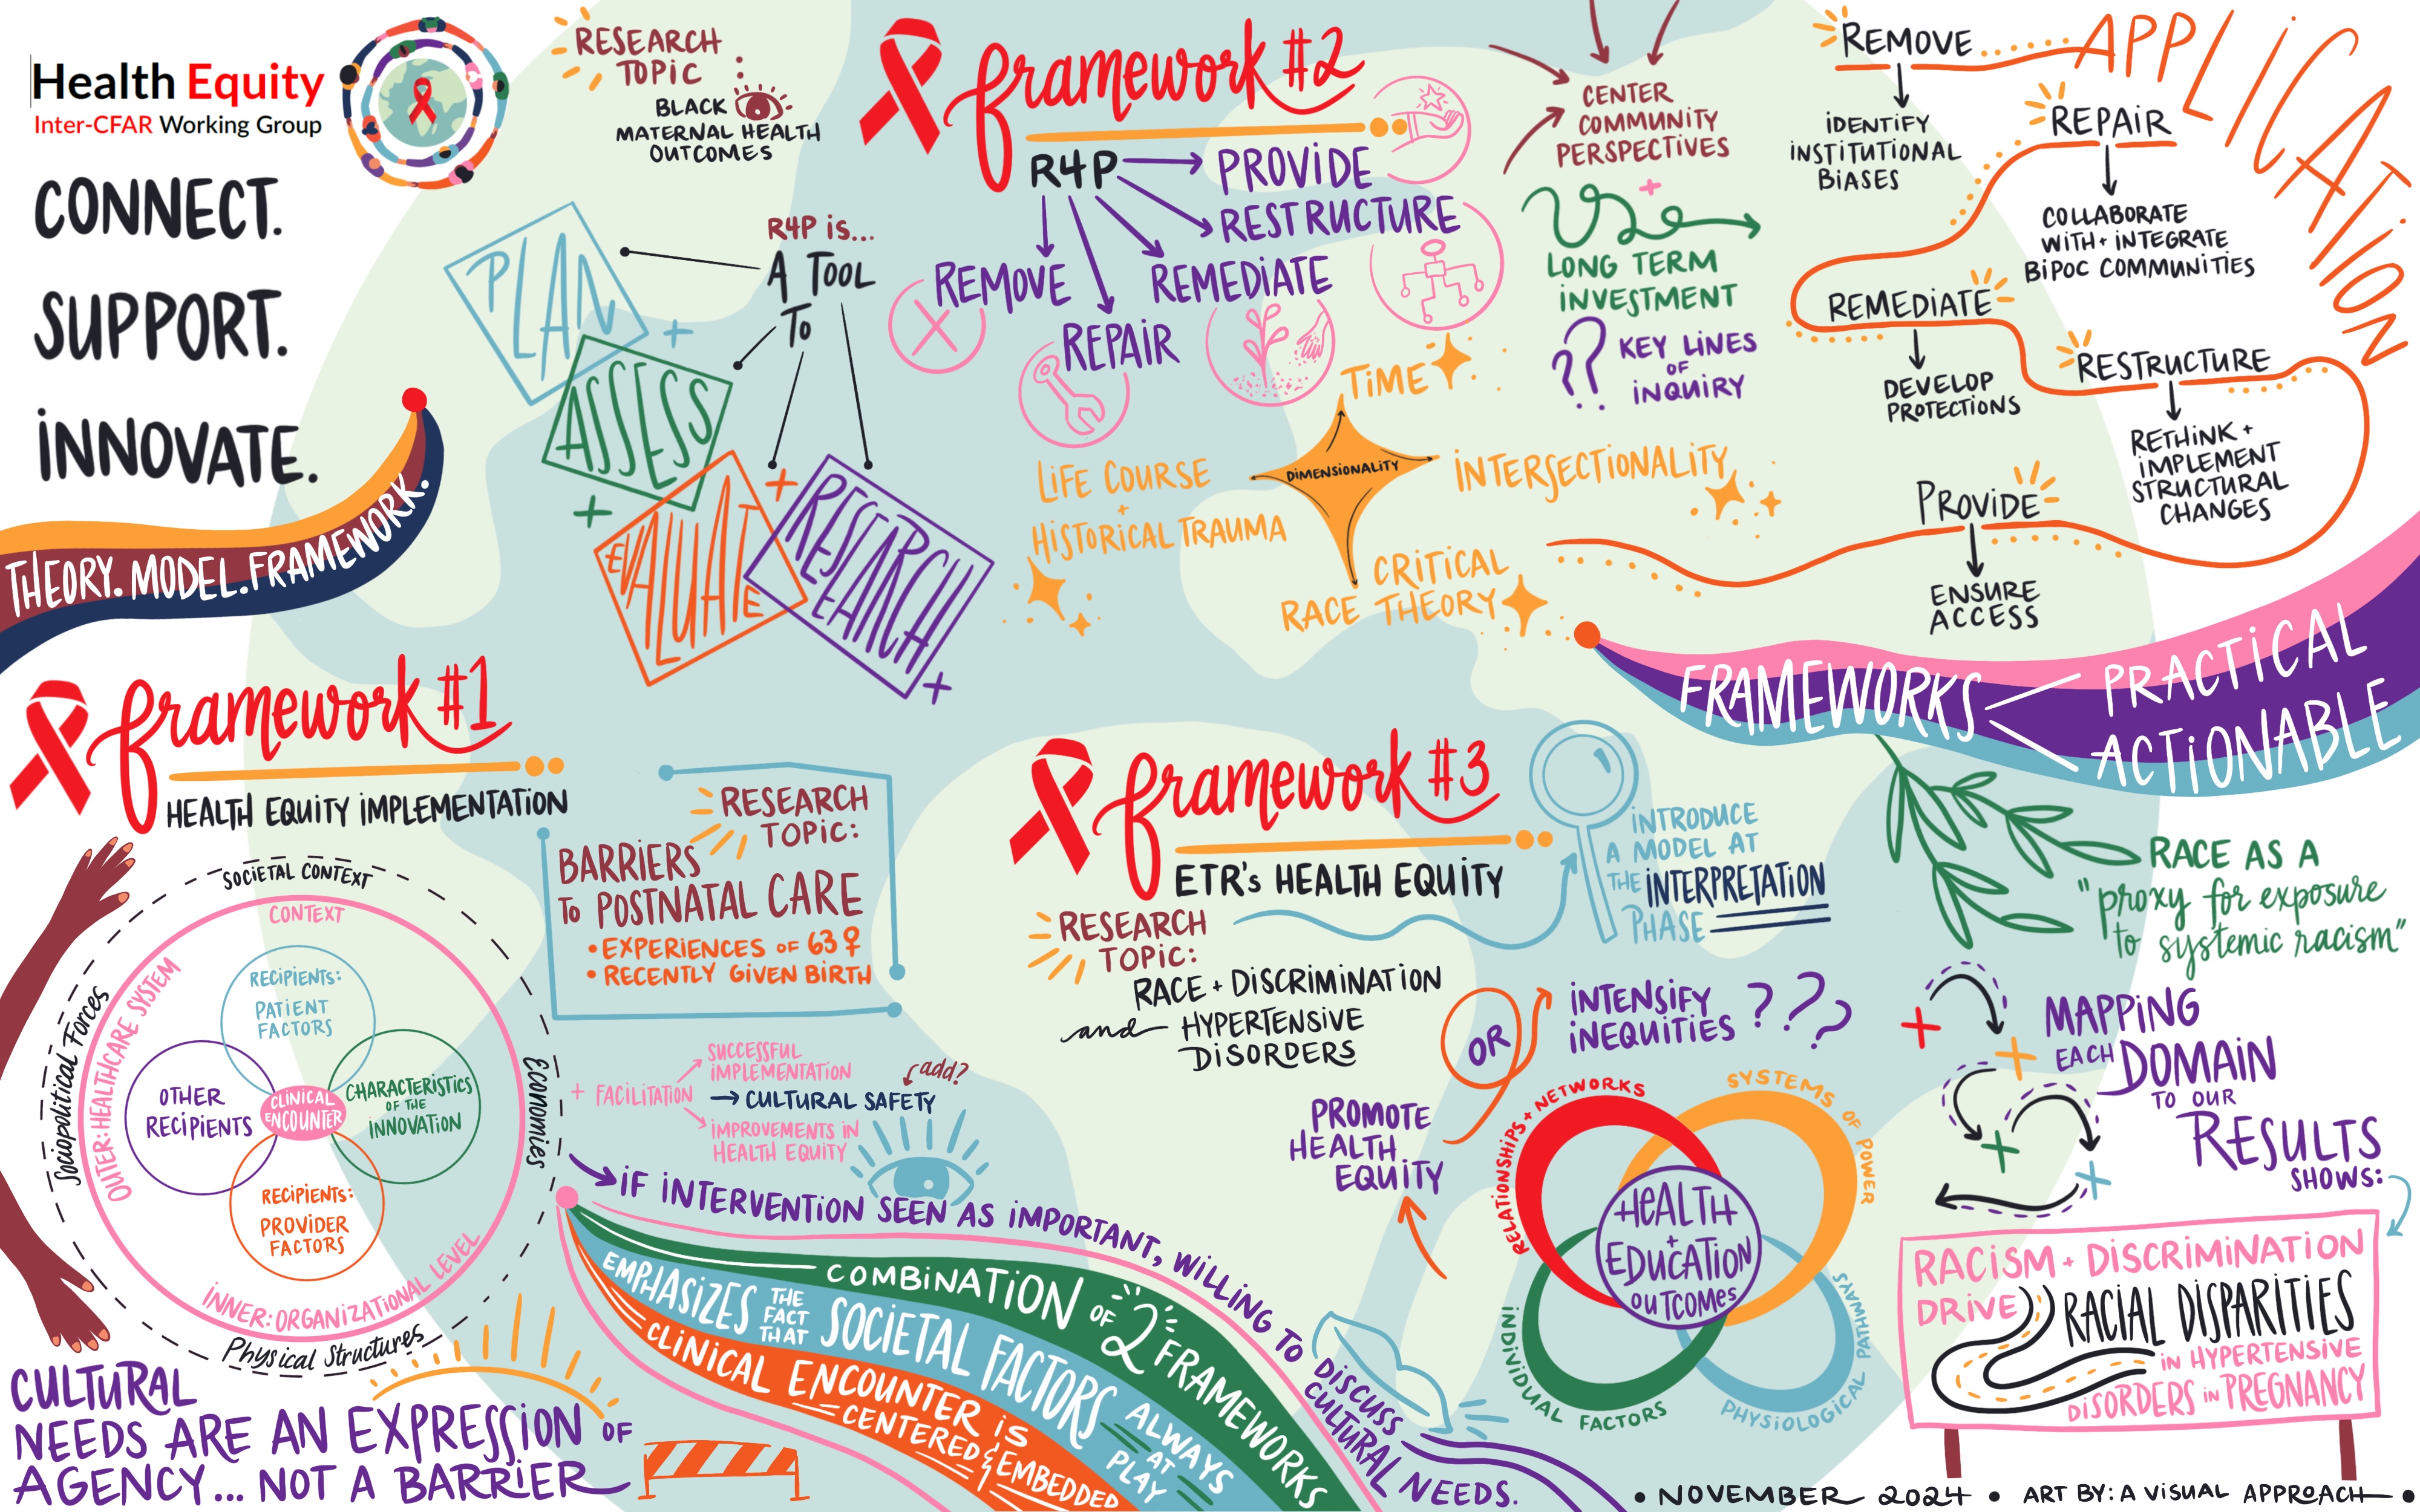 Health Equity
Inter-CFAR Working Group
CONNECT.
SUPPORT.
INNOVATE.
THEORY. MODEL. FRAMEWORK.
RESEARCH
TOPIC:
BLACK
MATERNAL HEALTH
OUTCOMES
framework #2
R4P
PROVIDE
RESTRUCTURE
REMEDIATE
REPAIR
REMOVE
R4P is...
A TOOL
TO
PLAN
+
ASSESS
+
EVALUATE
+
RESEARCH
+
CENTER
COMMUNITY
PERSPECTIVES
+
LONG TERM
INVESTMENT
??
KEY LINES
OF
INQUIRY
TIME
DIMENSIONALITY
LIFE COURSE
+
HISTORICAL TRAUMA
INTERSECTIONALITY
CRITICAL
RACE THEORY
APPLICATION
REMOVE
IDENTIFY
INSTITUTIONAL
BIASES
REPAIR
COLLABORATE
WITH + INTEGRATE
BIPOC COMMUNITIES
REMEDIATE
DEVELOP
PROTECTIONS
RESTRUCTURE
RETHINK +
IMPLEMENT
STRUCTURAL
CHANGES
PROVIDE
ENSURE
ACCESS
FRAMEWORKS
PRACTICAL
ACTIONABLE
framework #1
HEALTH EQUITY IMPLEMENTATION
SOCIETAL CONTEXT
CONTEXT
OUTER: HEALTHCARE SYSTEM
Sociopolitical Forces
Economies
Physical Structures
INNER: ORGANIZATIONAL LEVEL
RECIPIENTS:
PATIENT
FACTORS
OTHER
RECIPIENTS
CLINICAL
ENCOUNTER
CHARACTERISTICS
OF THE
INNOVATION
RECIPIENTS:
PROVIDER
FACTORS
RESEARCH
TOPIC:
BARRIERS
TO POSTNATAL CARE
• EXPERIENCES OF 63 ♀
• RECENTLY GIVEN BIRTH
+ FACILITATION
SUCCESSFUL
IMPLEMENTATION
add?
CULTURAL SAFETY
IMPROVEMENTS IN
HEALTH EQUITY
IF INTERVENTION SEEN AS IMPORTANT, WILLING TO DISCUSS
CULTURAL NEEDS.
COMBINATION OF 2 FRAMEWORKS
EMPHASIZES THE FACT THAT SOCIETAL FACTORS ALWAYS AT PLAY
CLINICAL ENCOUNTER IS
CENTERED & EMBEDDED
CULTURAL
NEEDS ARE AN EXPRESSION OF
AGENCY... NOT A BARRIER
framework #3
ETR's HEALTH EQUITY
RESEARCH
TOPIC:
RACE + DISCRIMINATION
and HYPERTENSIVE
DISORDERS
INTRODUCE
A MODEL AT
THE INTERPRETATION
PHASE
PROMOTE
HEALTH
EQUITY
OR
INTENSIFY
INEQUITIES ???
RELATIONSHIPS + NETWORKS
SYSTEMS OF POWER
HEALTH
+
EDUCATION
OUTCOMES
INDIVIDUAL FACTORS
PHYSIOLOGICAL PATHWAYS
RACE AS A
"proxy for exposure
to systemic racism"
MAPPING
EACH DOMAIN
TO OUR
RESULTS
SHOWS:
RACISM + DISCRIMINATION
DRIVE RACIAL DISPARITIES
IN HYPERTENSIVE
DISORDERS IN PREGNANCY
• NOVEMBER 2024 • ART BY: A VISUAL APPROACH •